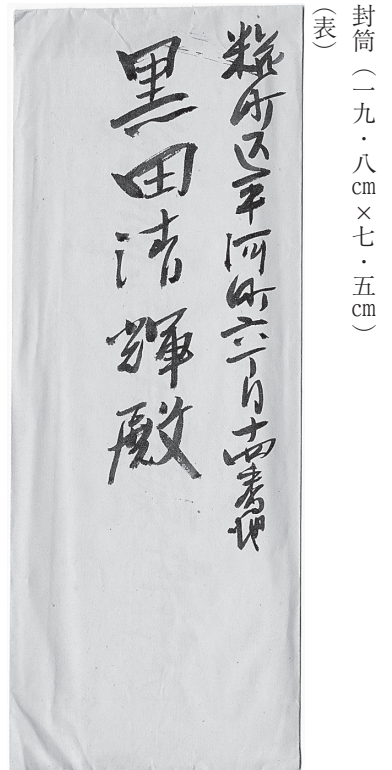 封筒（一九・八cm×七・五cm）
（表）
糀町区平河町六丁目十四番地
黒田清輝殿